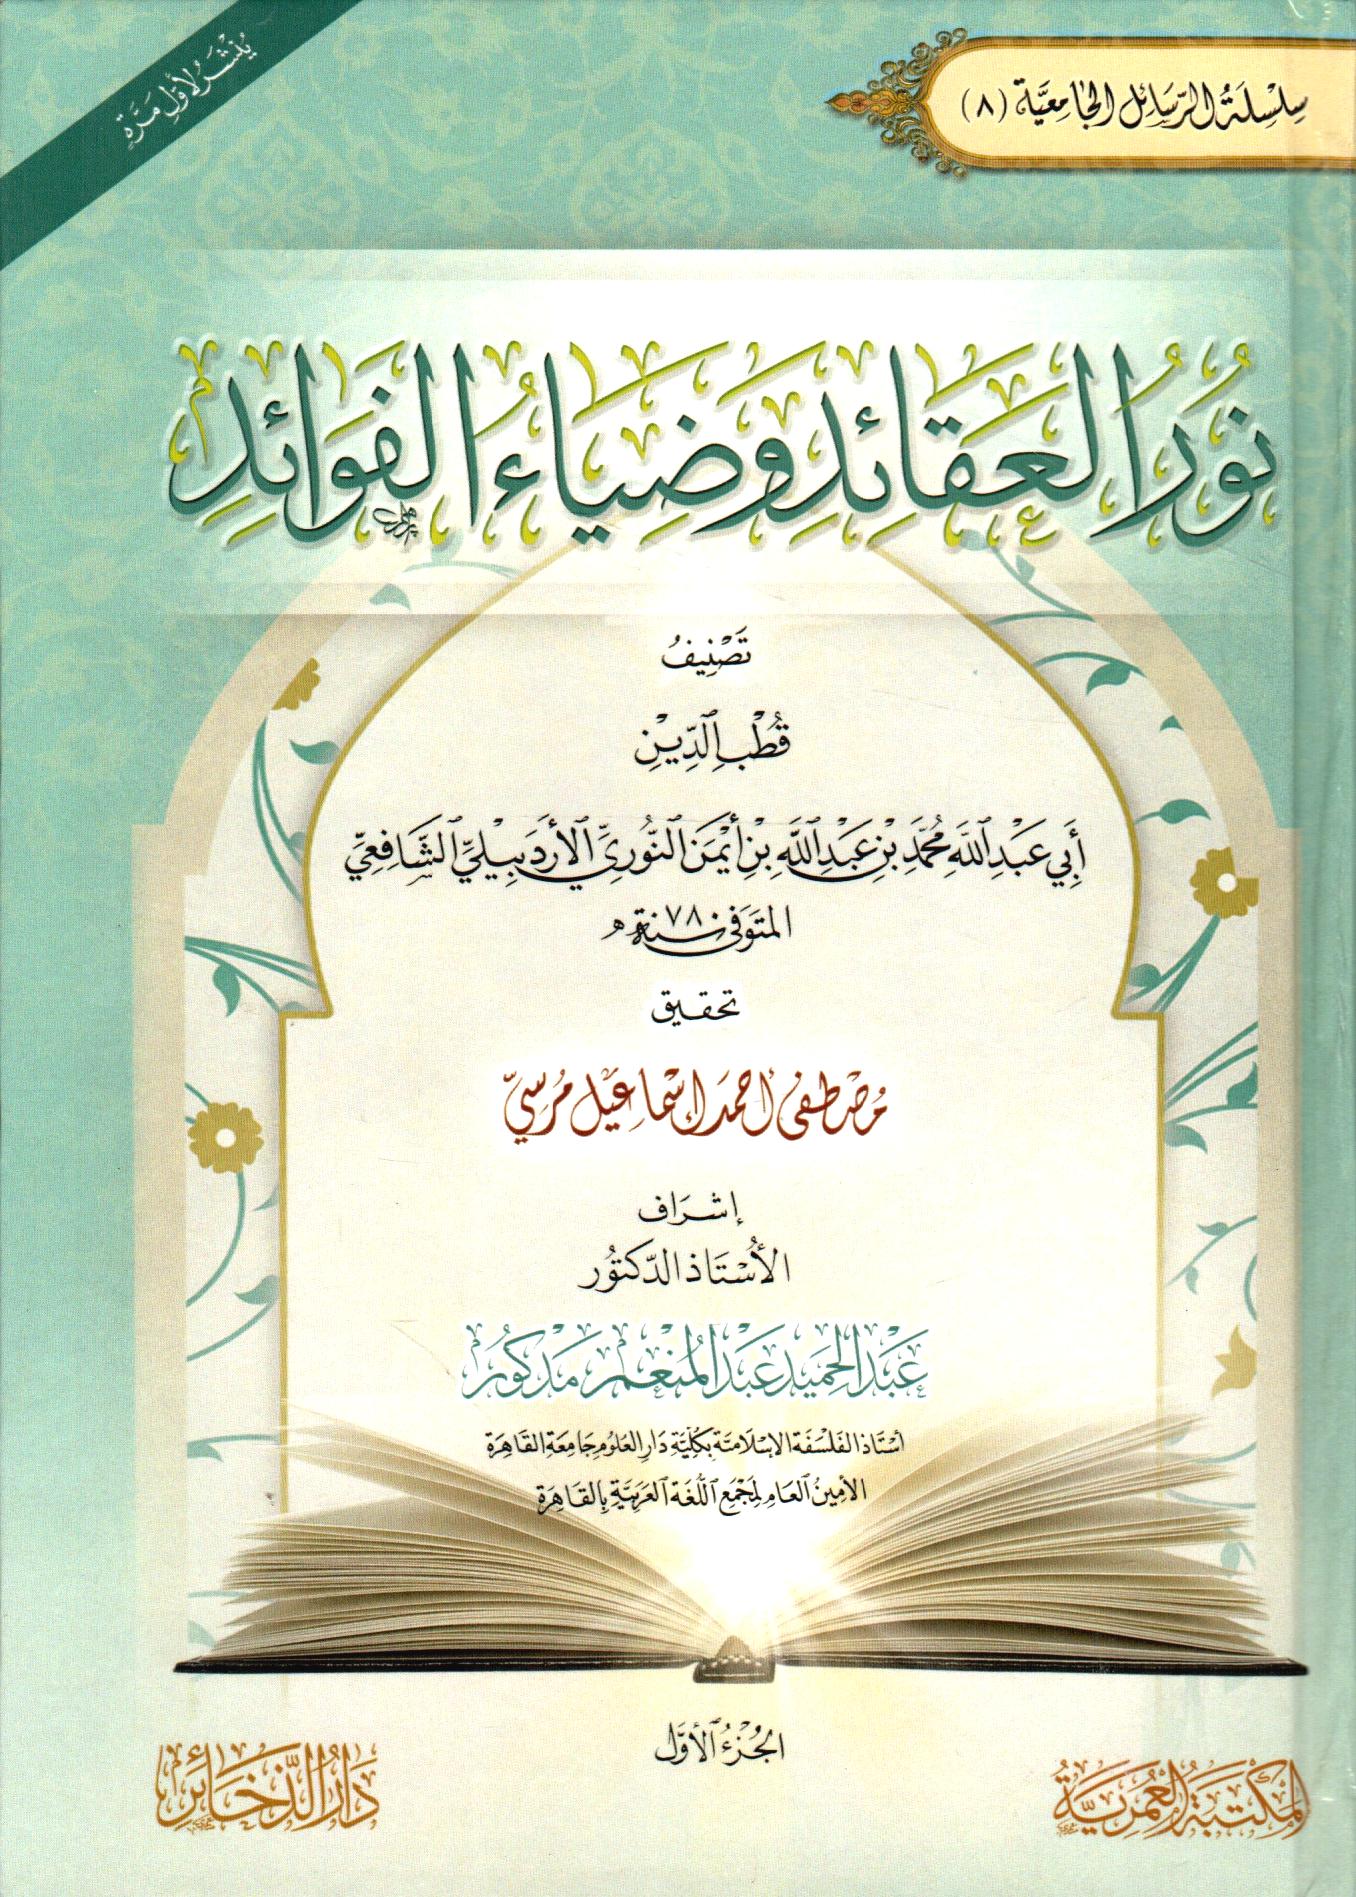 سِلْسِلَةُ الرَّسَائِل الْجَامِعِيَّة (٨)
يُنْشَرُ لأوَّلِ مَرَّةٍ
نُورُ الْعَقَائِدِ وَضِيَاءُ الْفَوَائِدِ
تَصْنِيفُ
قُطْبِ الدِّينِ
أَبِي عَبْدِ اللَّهِ مُحَمَّدِ بْنِ عَبْدِ اللَّهِ بْنِ أَيْمَنَ النُّورِيِّ الْأَرْدَبِيلِيِّ الشَّافِعِيِّ
المتَوَفى سنة ٧٨٠ هـ
تحقيق
مُصْطفى أحمَد إسْمَاعَيل مُرسِيّ
إشرَاف
الأُسْتَاذ الدّكتُور
عَبْد الْحَمِيد عَبْد الْمُنْعِم مَدكُور
أستَاذ الفَلسَفَة الإسْلَامِيَّة بكلِيَّة دَار العُلوُم جَامعَة القَاهِرَة
الأمِينُ العَام لمَجْمَع اللُّغَة العَرَبِيَّة بِالقَاهِرَة
الجُزْءُ الأَوَّل
المَكتَبَة العُمَرِيَّة
دَارُ الذَّخَائِر